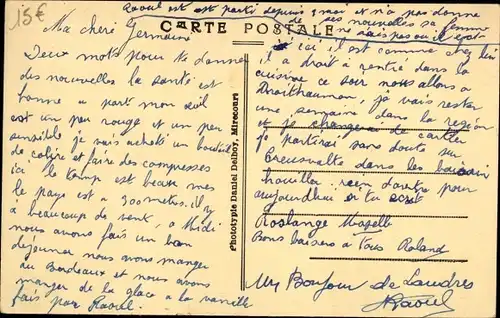 15€
Raoul est est parti depuis 1 moi et n'a pas donne
de ses nouvelles sa femme
ne sais pas ou il est
CARTE POSTALE
Ma cheri Germaine
Deux mots pour te donne
des nouvelles la santé est
bonne a part mon œil
est un peu rouge et un peu
sensible je sais acheté un bouteille
de colire et faire des compresses
ici le temp est beau mes
le pays est a 300 metres il y
a beaucoup de vent, a Midi
nous avons fais un bon
dejeuner nous avons manger
au Bordeaux et nous avons
manger de la glace a la vanille
fais par Raoul.
Phototypie Daniel Delboy, Mirecourt
ici il est comme chez lui
il a droit a rentré dans la
cuisine ce soir nous allons a
je vais rester
une semaine dans la region
et je changerai de cartier
je partirai sans doute sur
dans les bassin
houiller rien d'autre pour
aujourdhui en tu ecrit
Roslange Moselle
Bons baisers a Tous Roland
un Bonjour de Loudres
Raoul